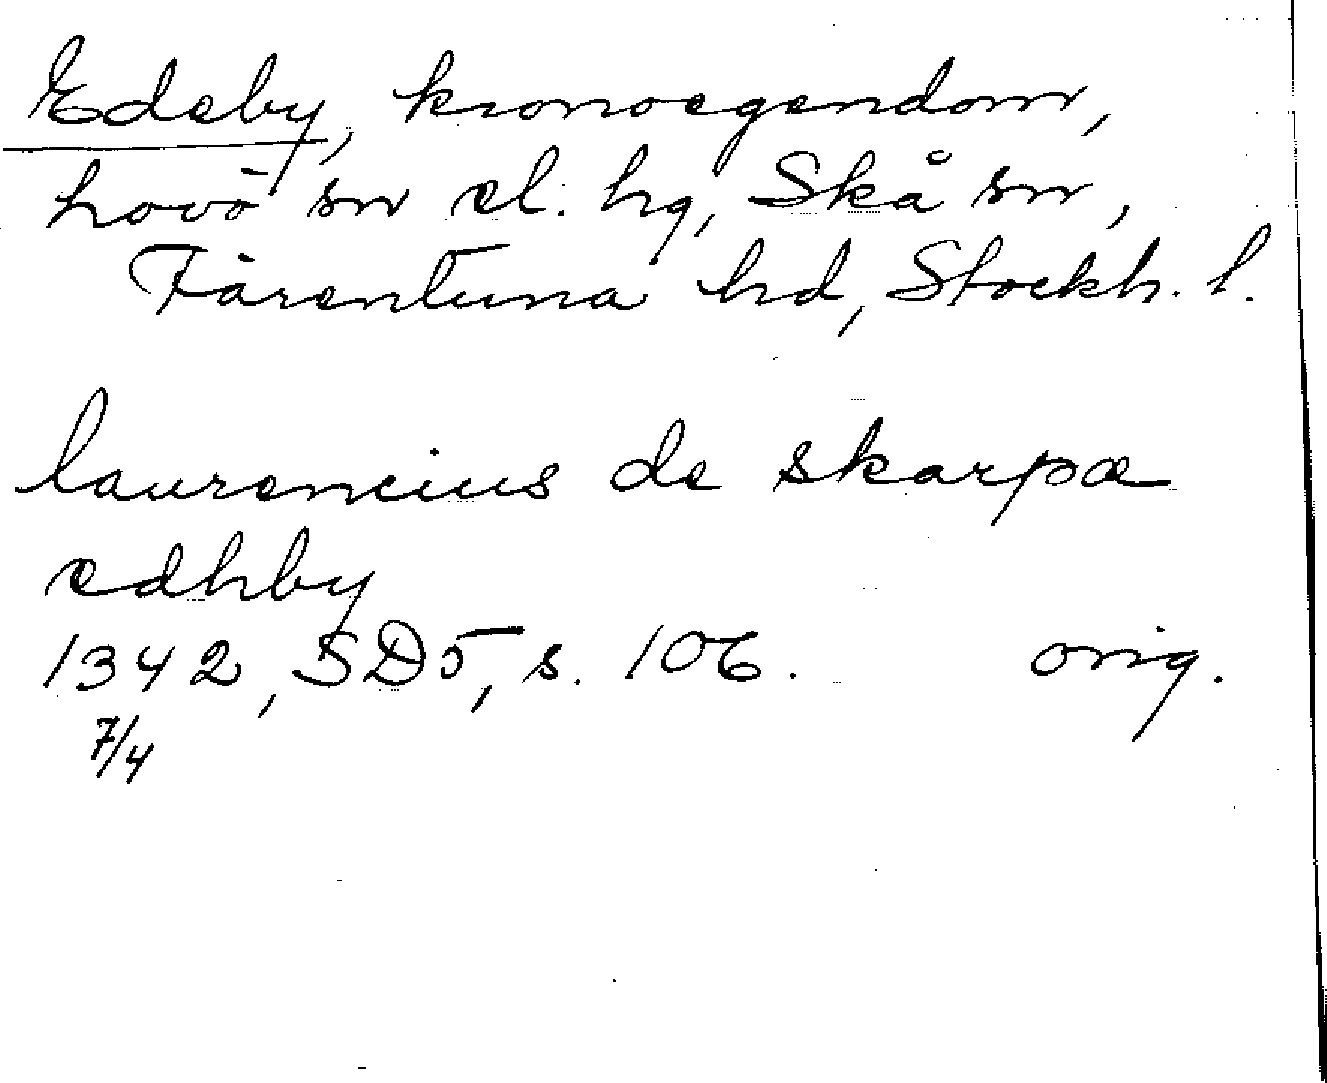 Edeby, kronoegendom,
Lovö sn el. hg, Skå sn,
Färentuna hd, Stockh. l.
laurencius de skarpa
edhby
1342, SD5, s. 106. orig.
7/4